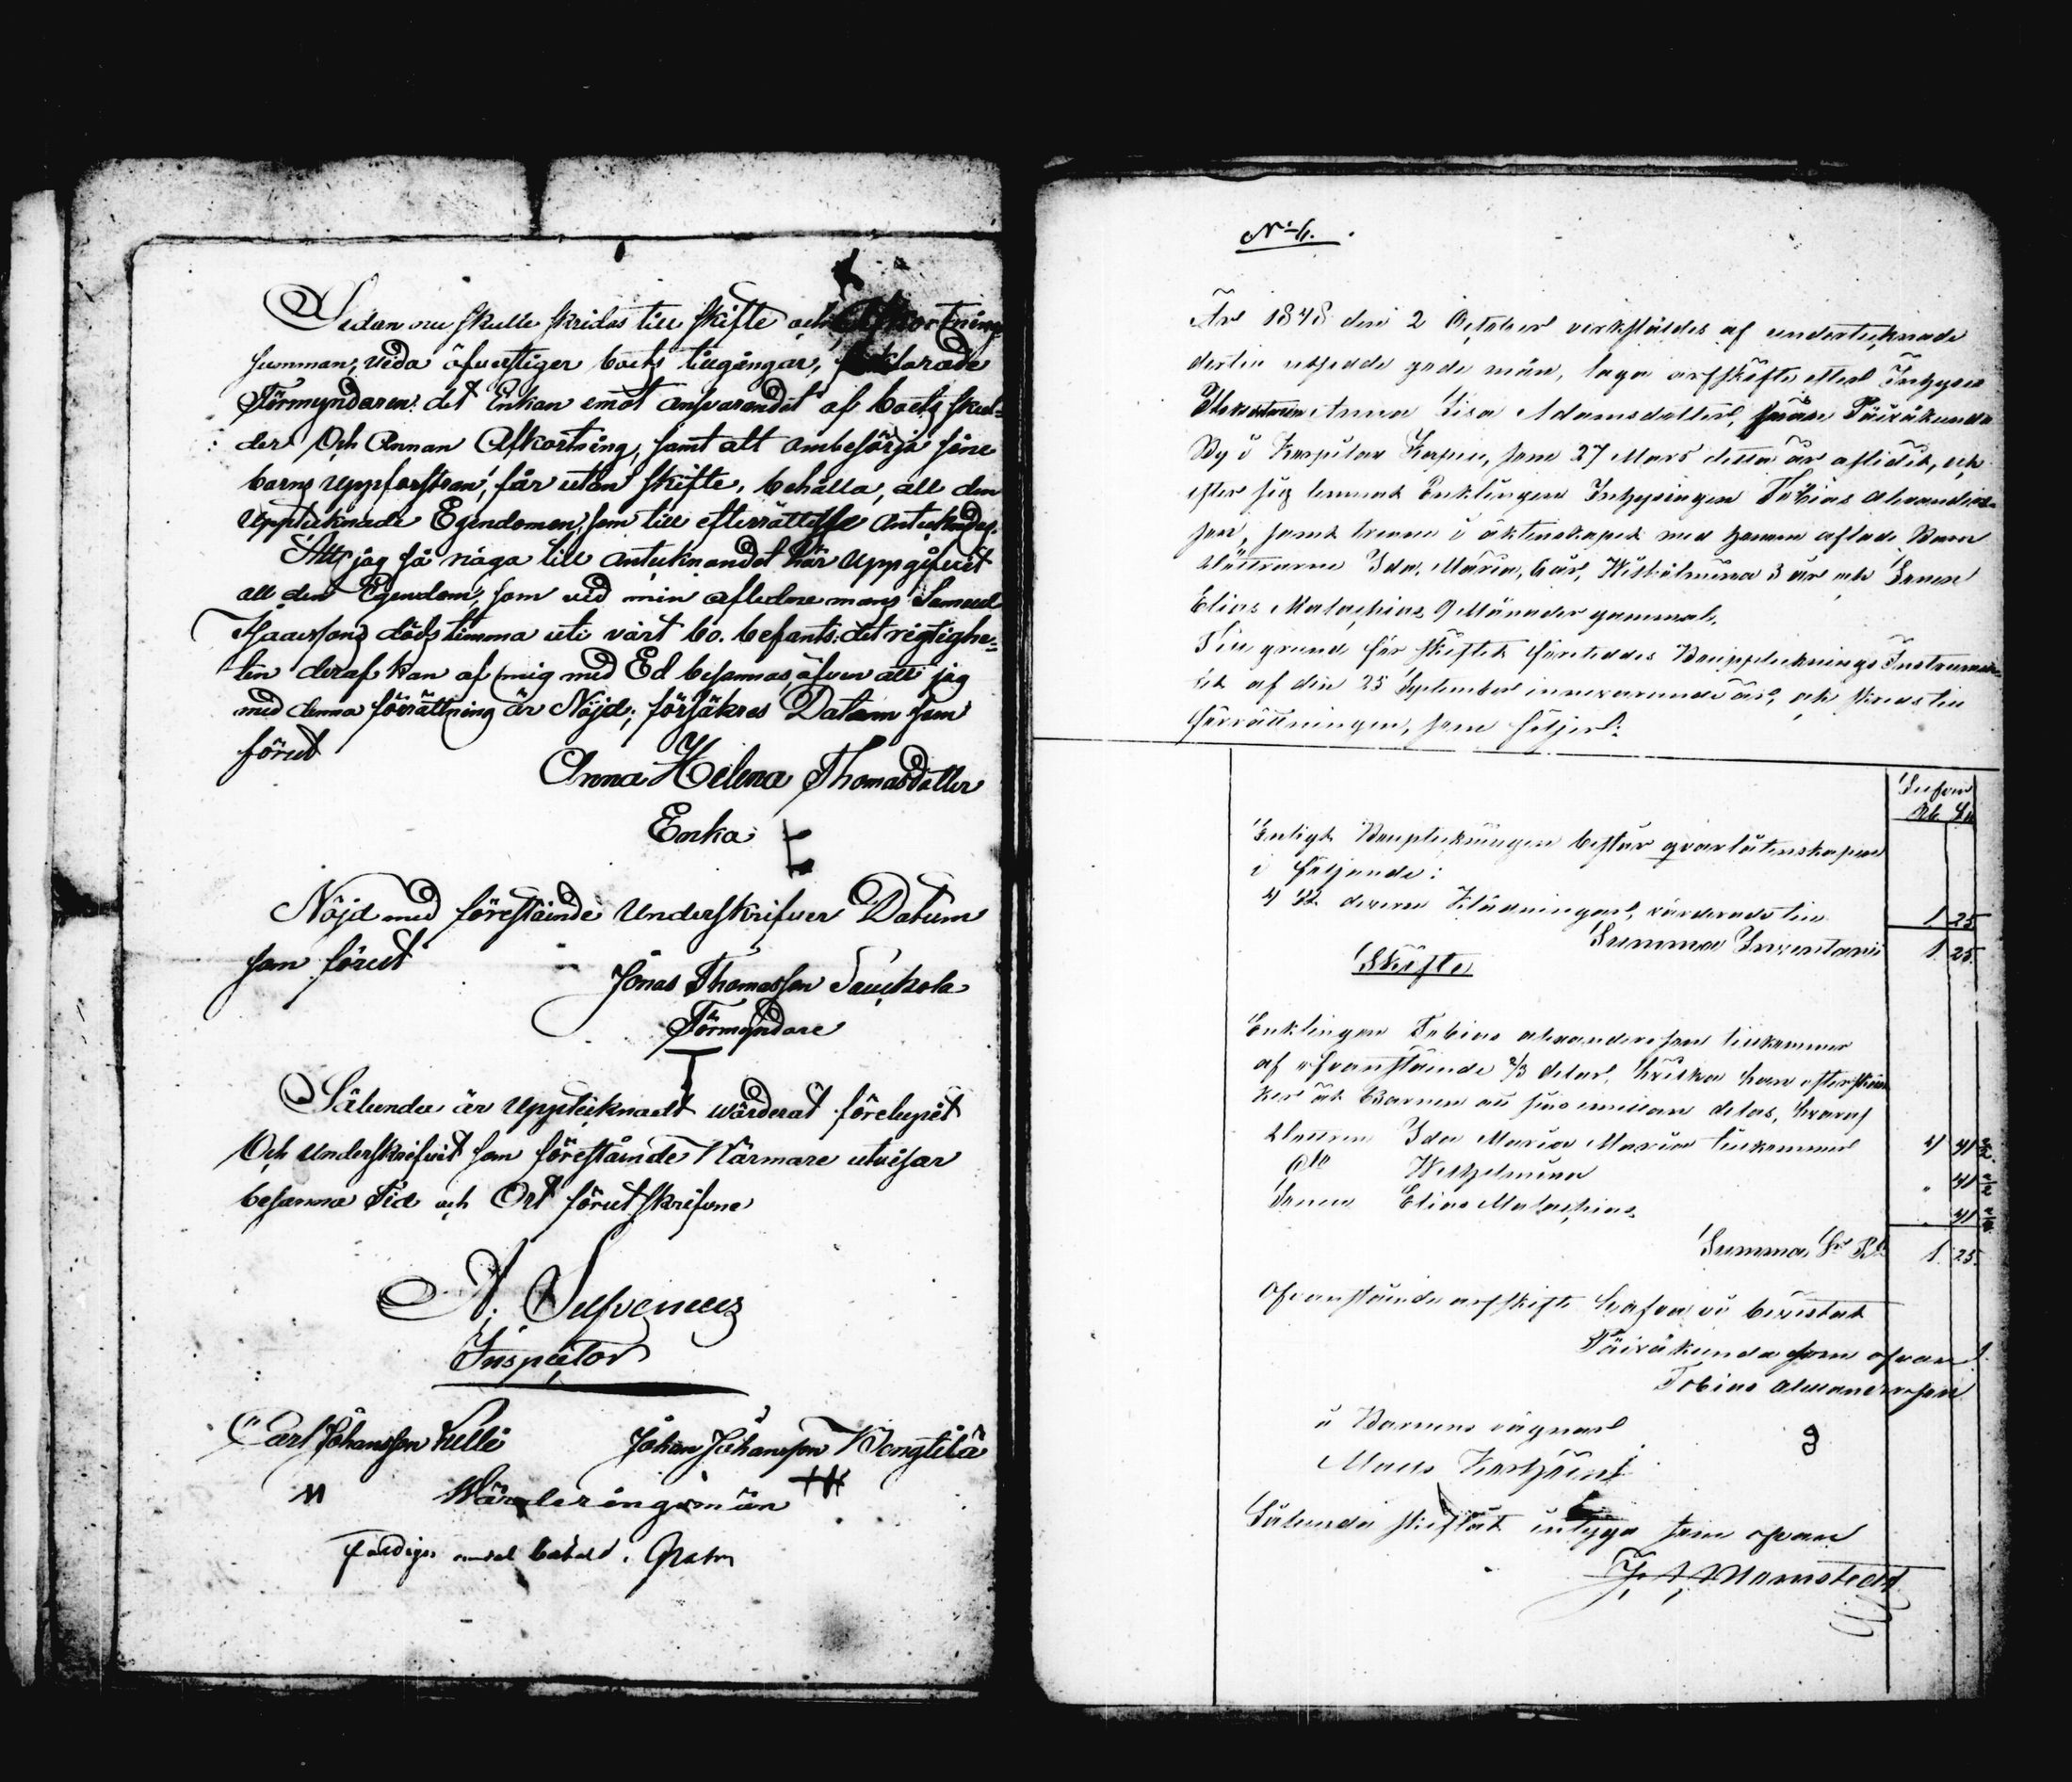 Sedan nu skulle skridas till skifte och Afkortnings
summan, vida öfverstiger boets tillgångar, förklarade
Förmyndaren det Enkan emot ansvarandet af boets skul-
der Och Annan Afkortning, samt att ombesörja sine
barns uppfostran, får utan skifte, behålla, all den
upptecknade Egendomen, som till efterrättelse Antecknades.
Att jag så noga till antecknandet här Uppgifvit
all den Egendom, som vid min aflidne mans Samuel
Isaacssons dödstimma uti vårt bo. befants, det rigtighe-
ten deraf kan af mig med Ed besannas, äfven att jag
med denna förrättning är Nöjd; försäkras Datum som
förut
Anna Helena Thomasdotter
Enka
Nöjd med förestående Underskrifver Datum
som förut
Jonas Thomasson
Förmyndare
Sålunda är Upptecknadt wärderat förelupit
Och Underskrifvit som förestående Närmare utvisar
besanna Tid och Ort förutskrifvne
Inspector
Carl Johansson Johan Johansson
Wärderingsmän
No 6.
År 1848 den 2 October verkstäldes af undertecknade
dertill utsedde gode män, laga arfskifte efter Inhyses
Anna Lisa Adamsdotter, från Päiväkunda
By i Karpula Kapell, som 27 Mars detta år aflidit, och
efter sig lemnat Enklingen Inhysingen Tobias Alexanders-
son, samt trenne i äktenskapet med honom aflade Barn
döttrarne Ida Maria, 6 år, Wilhelmina 3 år och Sonen
Elias Malachias 9 Månader gammal.
Till grund för skiftet företeddes Bouppteknings Instrumen-
tet af den 25 September innevarande år, och skreds till
förrättningen, som följer:
Silfver
Rb Kop
Enligt Bouptekningen består qvarlåtenskapen
i följande:
4 St diverse Klädningar, värderade till 1 25
Summa Inventarii 1 25.
Skifte
Enklingen Tobias Alexandersson tillkommer
af ofvanstående 2/3 delar, hvilka han efterskän-
ker åt Barnen att sins emellan delas, hvaraf
dottren Ida Maria Maria tillkommer " 41 2/3.
dito Wilhelmina " 41 2/3
Sonen Elias Malachias " 41 2/3
Summa Sr Rb 1. 25.
Ofvanstående arfskifte hafva vi bevistat
Päiväkunda som ofvan
Tobias Alexandersson
å Barnens vägnar
Sålunda skiftat intyga som ofvan